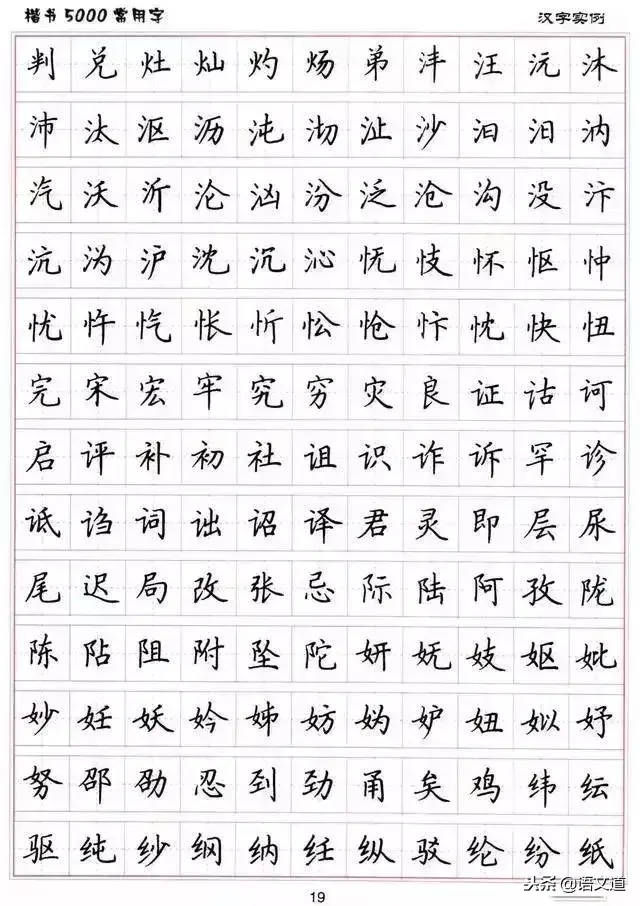 楷书5000常用字 汉字实例
判兑灶灿灼炀弟沣汪沅沐
沛汰沤沥沌沏沚沙汩汨汭
汽沃沂沦汹汾泛沧沟没汴
沆沩沪沈沉沁怃忮怀怄忡
忧忤忾怅忻忪怆忭忱快忸
完宋宏牢究穷灾良证诂诃
启评补初社诅识诈诉罕诊
诋诌词诎诏译君灵即层尿
尾迟局改张忌际陆阿孜陇
陈阽阻附坠陀妍妩妓妪妣
妙妊妖妗姊妨妫妒妞姒妤
努邵劭忍刭劲甬矣鸡纬纭
驱纯纱纲纳纴纵驳纶纷纸
19
头条@语文道